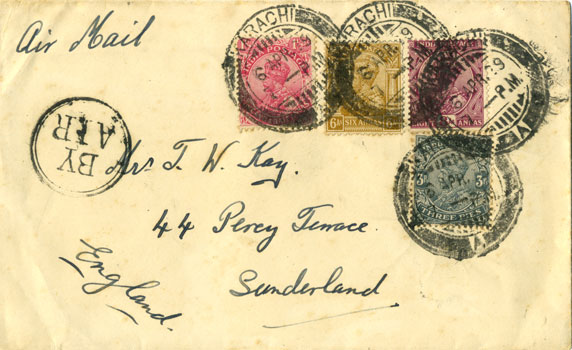 Air Mail
KARACHI
6 APR 29
1-P.M.
INDIA POSTAGE
SIX ANNAS
THREE PIES
BY
AIR
Mrs. T. W. Kay.
44 Percy Terrace.
Sunderland
England.